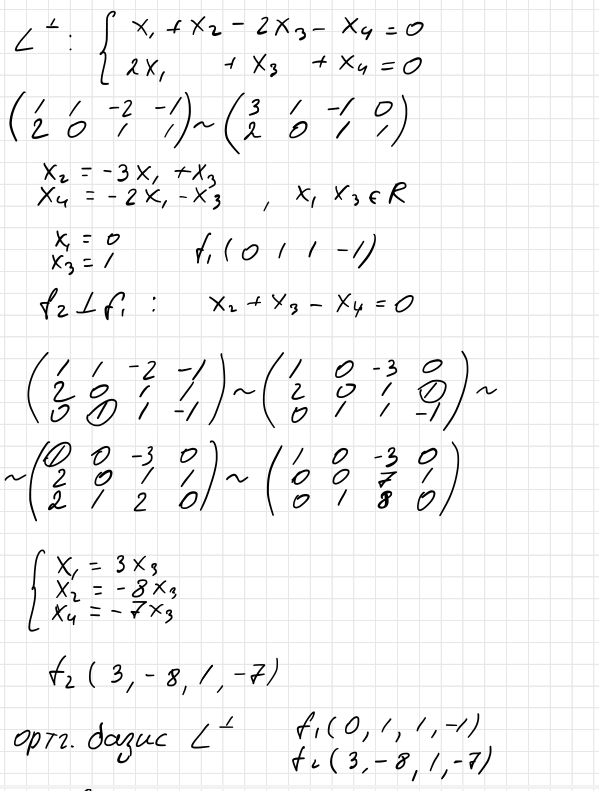 L⊥ : { x₁ + x₂ - 2x₃ - x₄ = 0
2x₁ + x₃ + x₄ = 0
( 1 1 -2 -1 ) ~ ( 3 1 -1 0 )
( 2 0 1 1 ) ( 2 0 1 1 )
x₂ = -3x₁ + x₃
x₄ = -2x₁ - x₃ , x₁ x₃ ∈ R
x₁ = 0
x₃ = 1 f₁ ( 0 1 1 -1 )
f₂ ⊥ f₁ : x₂ + x₃ - x₄ = 0
( 1 1 -2 -1 ) ( 1 0 -3 0 )
( 2 0 1 1 ) ~ ( 2 0 1 ① ) ~
( 0 ① 1 -1 ) ( 0 1 1 -1 )
( ① 0 -3 0 ) ( 1 0 -3 0 )
~ ( 2 0 1 1 ) ~ ( 0 0 7 1 )
( 2 1 2 0 ) ( 0 1 8 0 )
{ x₁ = 3x₃
x₂ = -8x₃
x₄ = -7x₃
f₂ ( 3, -8, 1, -7 )
ортг. базис L⊥ f₁ ( 0, 1, 1, -1 )
f₂ ( 3, -8, 1, -7 )